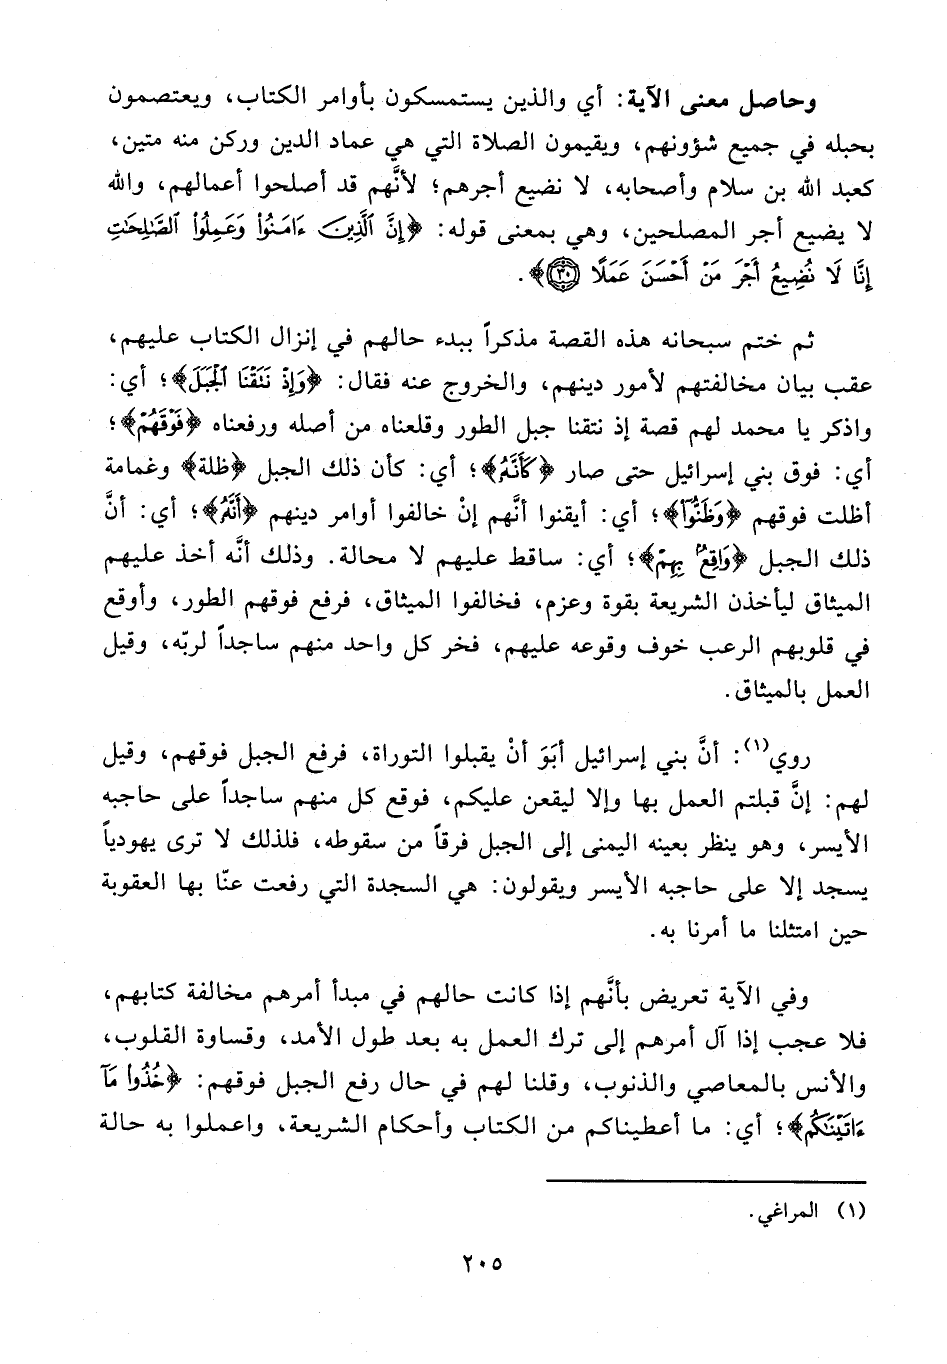 وحاصل معنى الآية: أي والذين يستمسكون بأوامر الكتاب، ويعتصمون
بحبله في جميع شؤونهم، ويقيمون الصلاة التي هي عماد الدين وركن منه متين،
كعبد الله بن سلام وأصحابه، لا نضيع أجرهم؛ لأنَّهم قد أصلحوا أعمالهم، والله
لا يضيع أجر المصلحين، وهي بمعنى قوله: ﴿إِنَّ ٱلَّذِينَ ءَامَنُوا۟ وَعَمِلُوا۟ ٱلصَّـٰلِحَـٰتِ
إِنَّا لَا نُضِيعُ أَجْرَ مَنْ أَحْسَنَ عَمَلًا ٣٠﴾.
ثم ختم سبحانه هذه القصة مذكراً ببدء حالهم في إنزال الكتاب عليهم،
عقب بيان مخالفتهم لأمور دينهم، والخروج عنه فقال: ﴿وَإِذْ نَتَقْنَا ٱلْجَبَلَ﴾؛ أي:
واذكر يا محمد لهم قصة إذ نتقنا جبل الطور وقلعناه من أصله ورفعناه ﴿فَوْقَهُمْ﴾؛
أي: فوق بني إسرائيل حتى صار ﴿كَأَنَّهُ﴾؛ أي: كأن ذلك الجبل ﴿ظلة﴾ وغمامة
أظلت فوقهم ﴿وَظَنُّوٓا۟﴾؛ أي: أيقنوا أنَّهم إنْ خالفوا أوامر دينهم ﴿أَنَّهُ﴾؛ أي: أنَّ
ذلك الجبل ﴿وَاقِعٌۢ بِهِمْ﴾؛ أي: ساقط عليهم لا محالة. وذلك أنَّه أخذ عليهم
الميثاق ليأخذن الشريعة بقوة وعزم، فخالفوا الميثاق، فرفع فوقهم الطور، وأوقع
في قلوبهم الرعب خوف وقوعه عليهم، فخر كل واحد منهم ساجداً لربّه، وقيل
العمل بالميثاق.
روي(١): أنَّ بني إسرائيل أبَوَ أنْ يقبلوا التوراة، فرفع الجبل فوقهم، وقيل
لهم: إنَّ قبلتم العمل بها وإلا ليقعن عليكم، فوقع كل منهم ساجداً على حاجبه
الأيسر، وهو ينظر بعينه اليمنى إلى الجبل فرقاً من سقوطه، فلذلك لا ترى يهودياً
يسجد إلا على حاجبه الأيسر ويقولون: هي السجدة التي رفعت عنّا بها العقوبة
حين امتثلنا ما أمرنا به.
وفي الآية تعريض بأنَّهم إذا كانت حالهم في مبدأ أمرهم مخالفة كتابهم،
فلا عجب إذا آل أمرهم إلى ترك العمل به بعد طول الأمد، وقساوة القلوب،
والأنس بالمعاصي والذنوب، وقلنا لهم في حال رفع الجبل فوقهم: ﴿خُذُوا۟ مَآ
ءَاتَيْنَـٰكُم﴾؛ أي: ما أعطيناكم من الكتاب وأحكام الشريعة، واعملوا به حالة
(١) المراغي.
٢٠٥